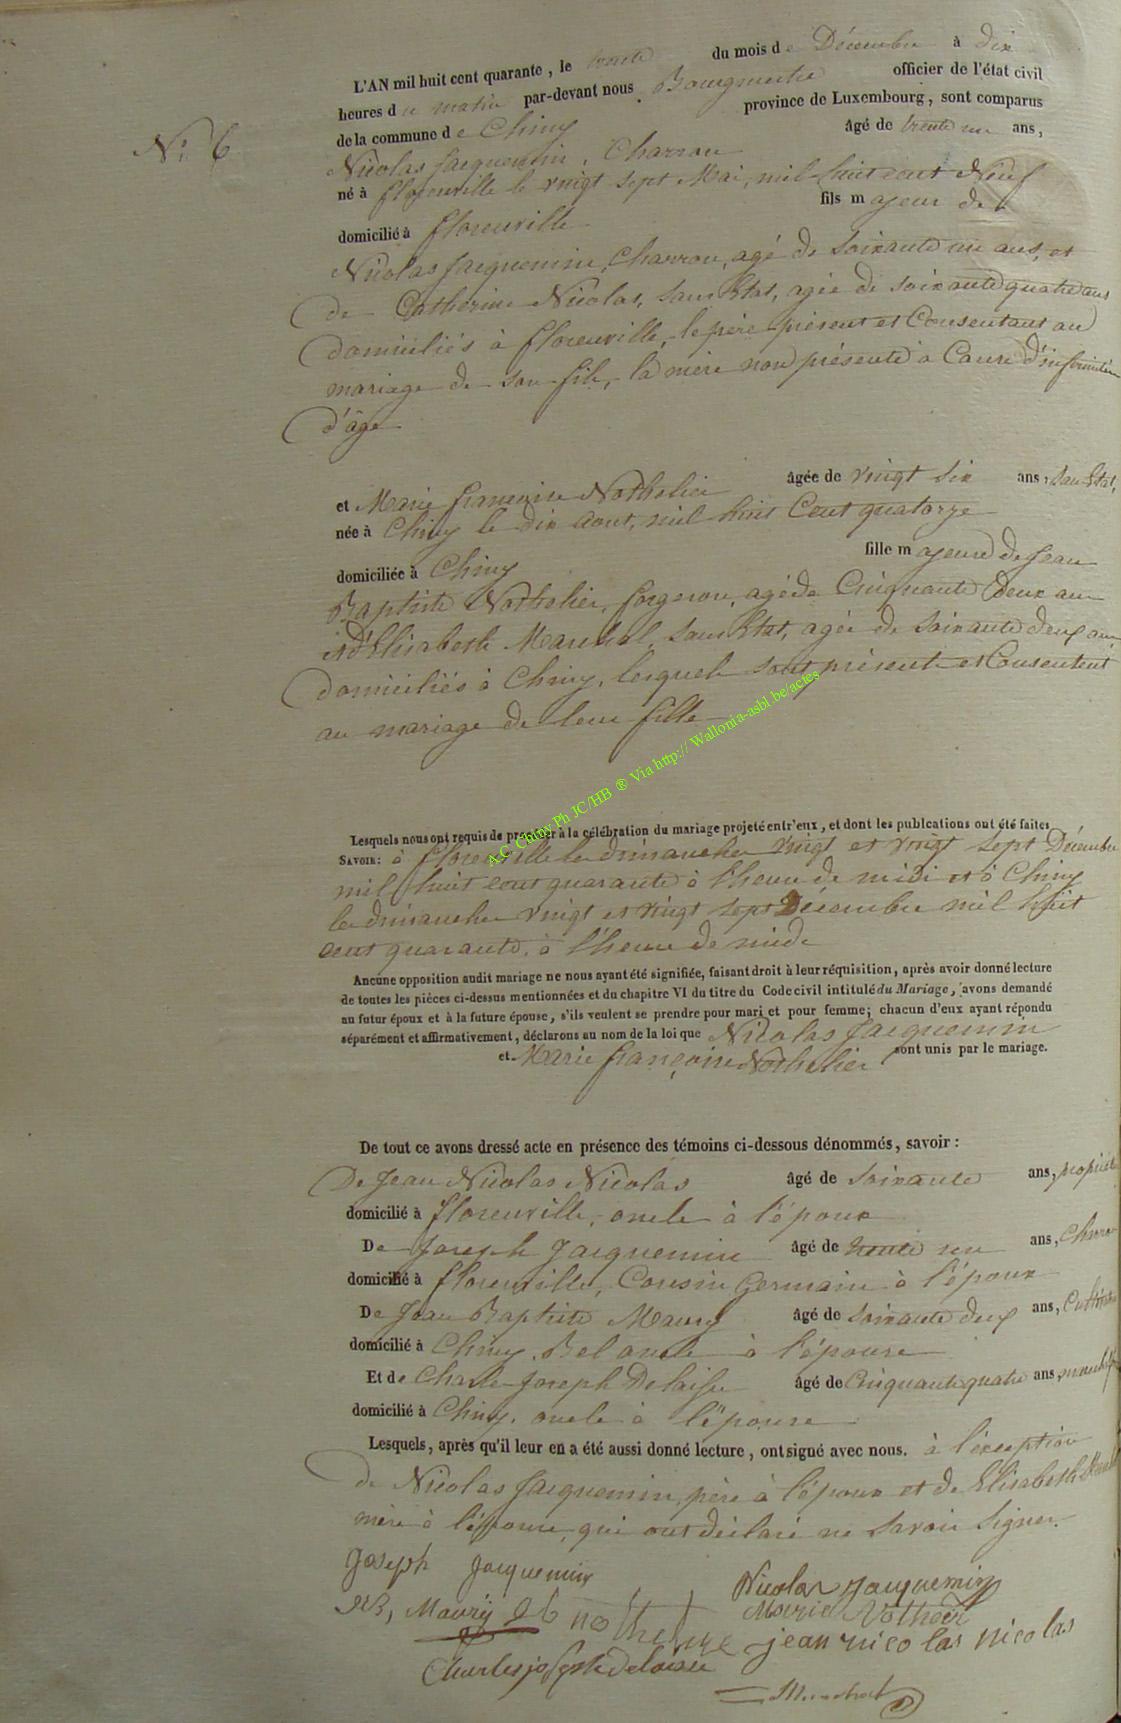 L'AN mil huit cent quarante, le trente du mois de Décembre à dix
heures du matin par-devant nous Bourgmestre officier de l'état civil
de la commune de Chiny province de Luxembourg, sont comparus
N° 6
Nicolas Jacquemin, Charron âgé de trente un ans,
né à florenville le vingt sept Mai, mil huit cent Neuf
domicilié à florenville fils majeur de
Nicolas Jacquemin, Charron, agé de soixante un ans, et
de Catherine Nicolas, sans Etat, agée de soixante quatre ans
domiciliés à florenville, le père présent et Consentant au
mariage de son fils, la mère non présente à Cause d'infirmité
d'âge
et Marie françoise Nothelier âgée de vingt six ans, sans Etat,
née à Chiny le dix aout, mil huit Cent quatorze
domiciliée à Chiny fille majeure de Jean
Baptiste Nothelier, forgeron, agé de Cinquante deux ans
et d'Elisabeth Marechal, sans Etat, agée de soixante deux ans
domiciliés à Chiny, lesquels sont présents et Consentent
au mariage de leur fille
A.C Chiny Ph JC/HB ® Via http:// Wallonia-asbl.be/actes
Lesquels nous ont requis de procéder à la célébration du mariage projeté entr'eux, et dont les publcations ont été faites
SAVOIR: à florenville les dimanches vingt et vingt sept Décembre
mil huit cent quarante à l'heure de midi et à Chiny
les dimanches vingt et vingt sept Décembre mil huit
cent quarante, à l'heure de midi
Aucune opposition audit mariage ne nous ayant été signifiée, faisant droit à leur réquisition, après avoir donné lecture
de toutes les pièces ci-dessus mentionnées et du chapitre VI du titre du Code civil intitulé du Mariage, avons demandé
au futur époux et à la future épouse, s'ils veulent se prendre pour mari et pour femme; chacun d'eux ayant répondu
séparément et affirmativement, déclarons au nom de la loi que Nicolas Jacquemin
et Marie françoise Nothelier sont unis par le mariage.
De tout ce avons dressé acte en présence des témoins ci-dessous dénommés, savoir:
De Jean Nicolas Nicolas âgé de soixante ans,
domicilié à florenville, oncle à l'époux
De Joseph Jacquemin âgé de trente un ans,
domicilié à florenville, Cousin Germain à l'époux
De Jean Baptiste Maury âgé de soixante deux ans,
domicilié à Chiny, Bel oncle à l'épouse
Et de Charle Joseph Delaisse âgé de Cinquante quatre ans
domicilié à Chiny, oncle à l'épouse
Lesquels, après qu'il leur en a été aussi donné lecture, ont signé avec nous. à l'exception
de Nicolas Jacquemin, père à l'époux et de Elisabeth
mère à l'épouse, qui ont déclaré ne savoir signer.
Joseph Jacquemin
Nicolas Jacquemin
Maury
Marie
jean nicolas nicolas
Charles joseph delaisse